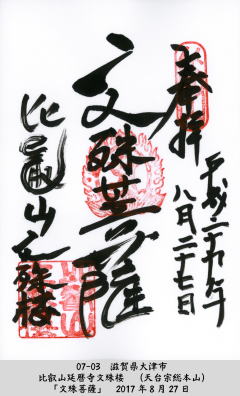 奉拝
平成二十九年
八月二十七日
文殊菩薩
比叡山文殊楼
07-03　滋賀県大津市
比叡山延暦寺文殊楼　（天台宗総本山）
「文殊菩薩」　2017年8月27日